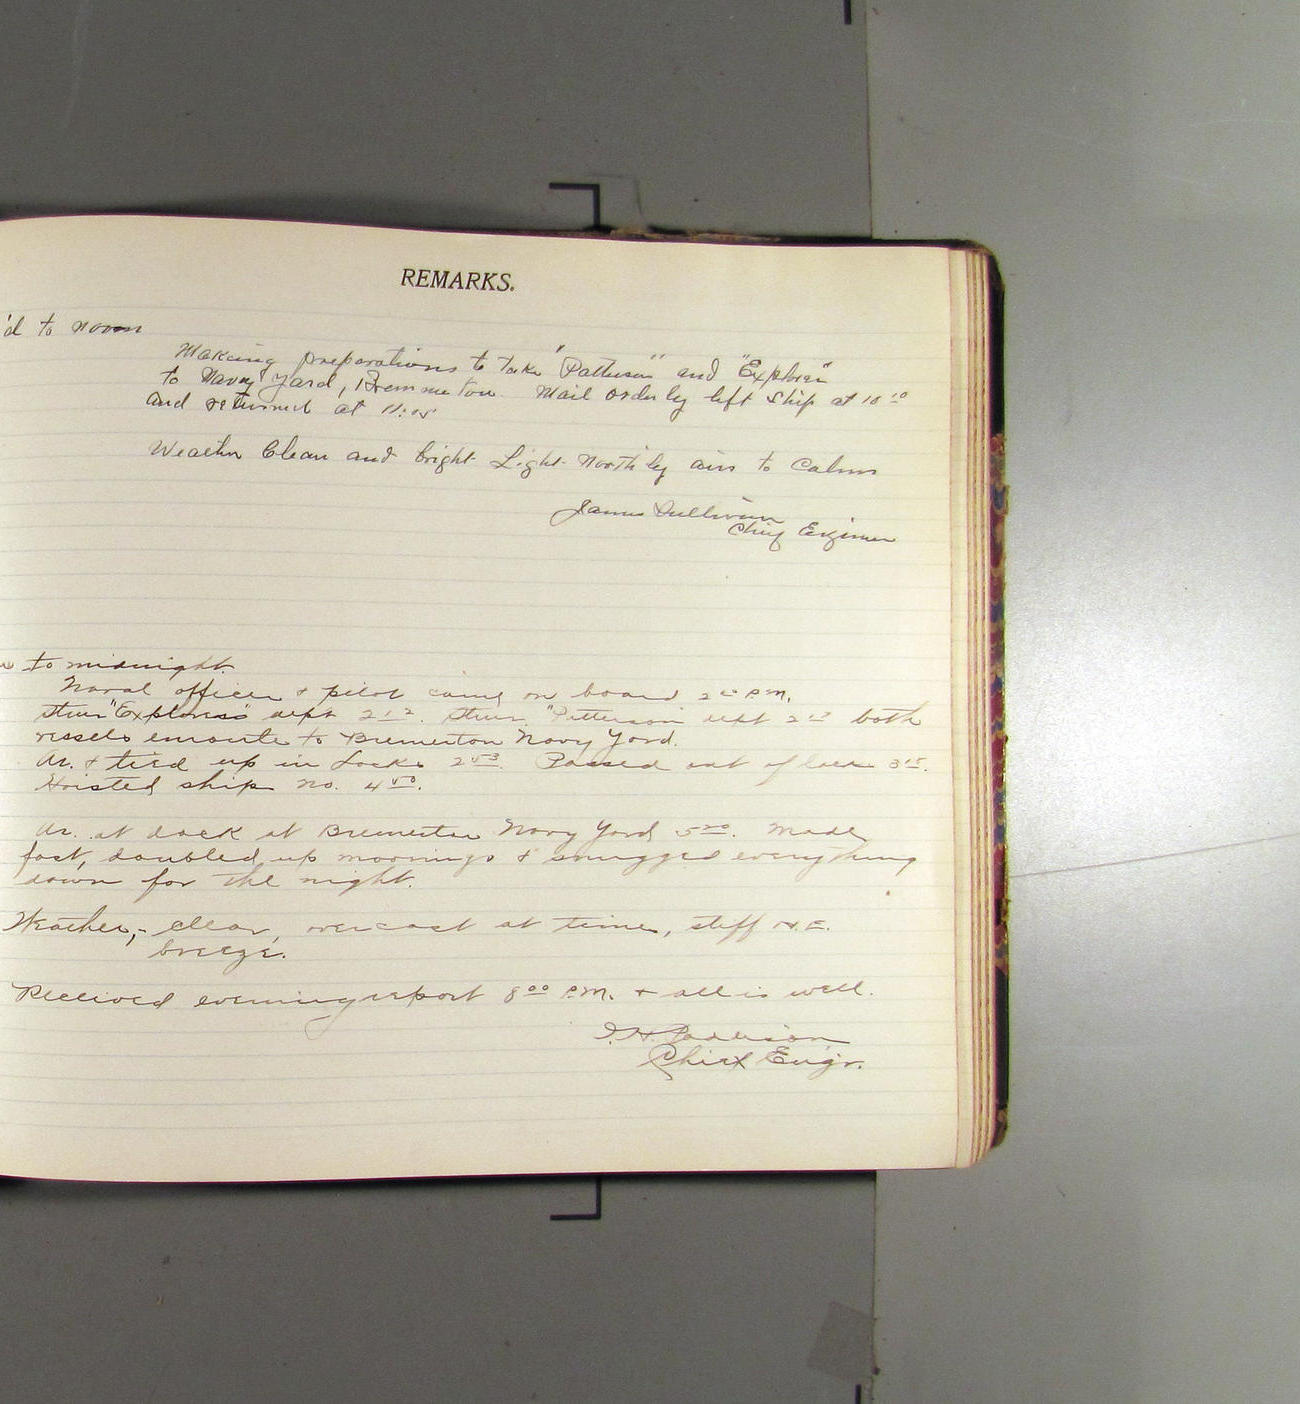 REMARKS.
'd to noon
Making preparations to take "Patterson" and "Explorer"
to Navy Yard, Bremmeton. Mail orderly left ship at 10 10
and returned at 11:05
Weather Clear and bright Light Northly airs to Calms
James Sullivan
Chief Engineer
to midnight.
Naval officer & pilot came on board P.M.
Stmr "Explorer" dept 2 12. Stmr. "Patterson" dept both
vessels enroute to Bremerton Navy Yard.
Ar. & tied up in Locks 2 53. Passed out of lock 3 15.
Hoisted ship no. 4 50.
Ar. at dock at Bremerton Navy Yard 5 20. Made
fast, doubled up moorings & snugged everything
down for the night.
Weather,- clear, overcast at times, stiff N.E.
breeze.
Received evening report 8 00 P.M. & all is well.
Chief Engr.